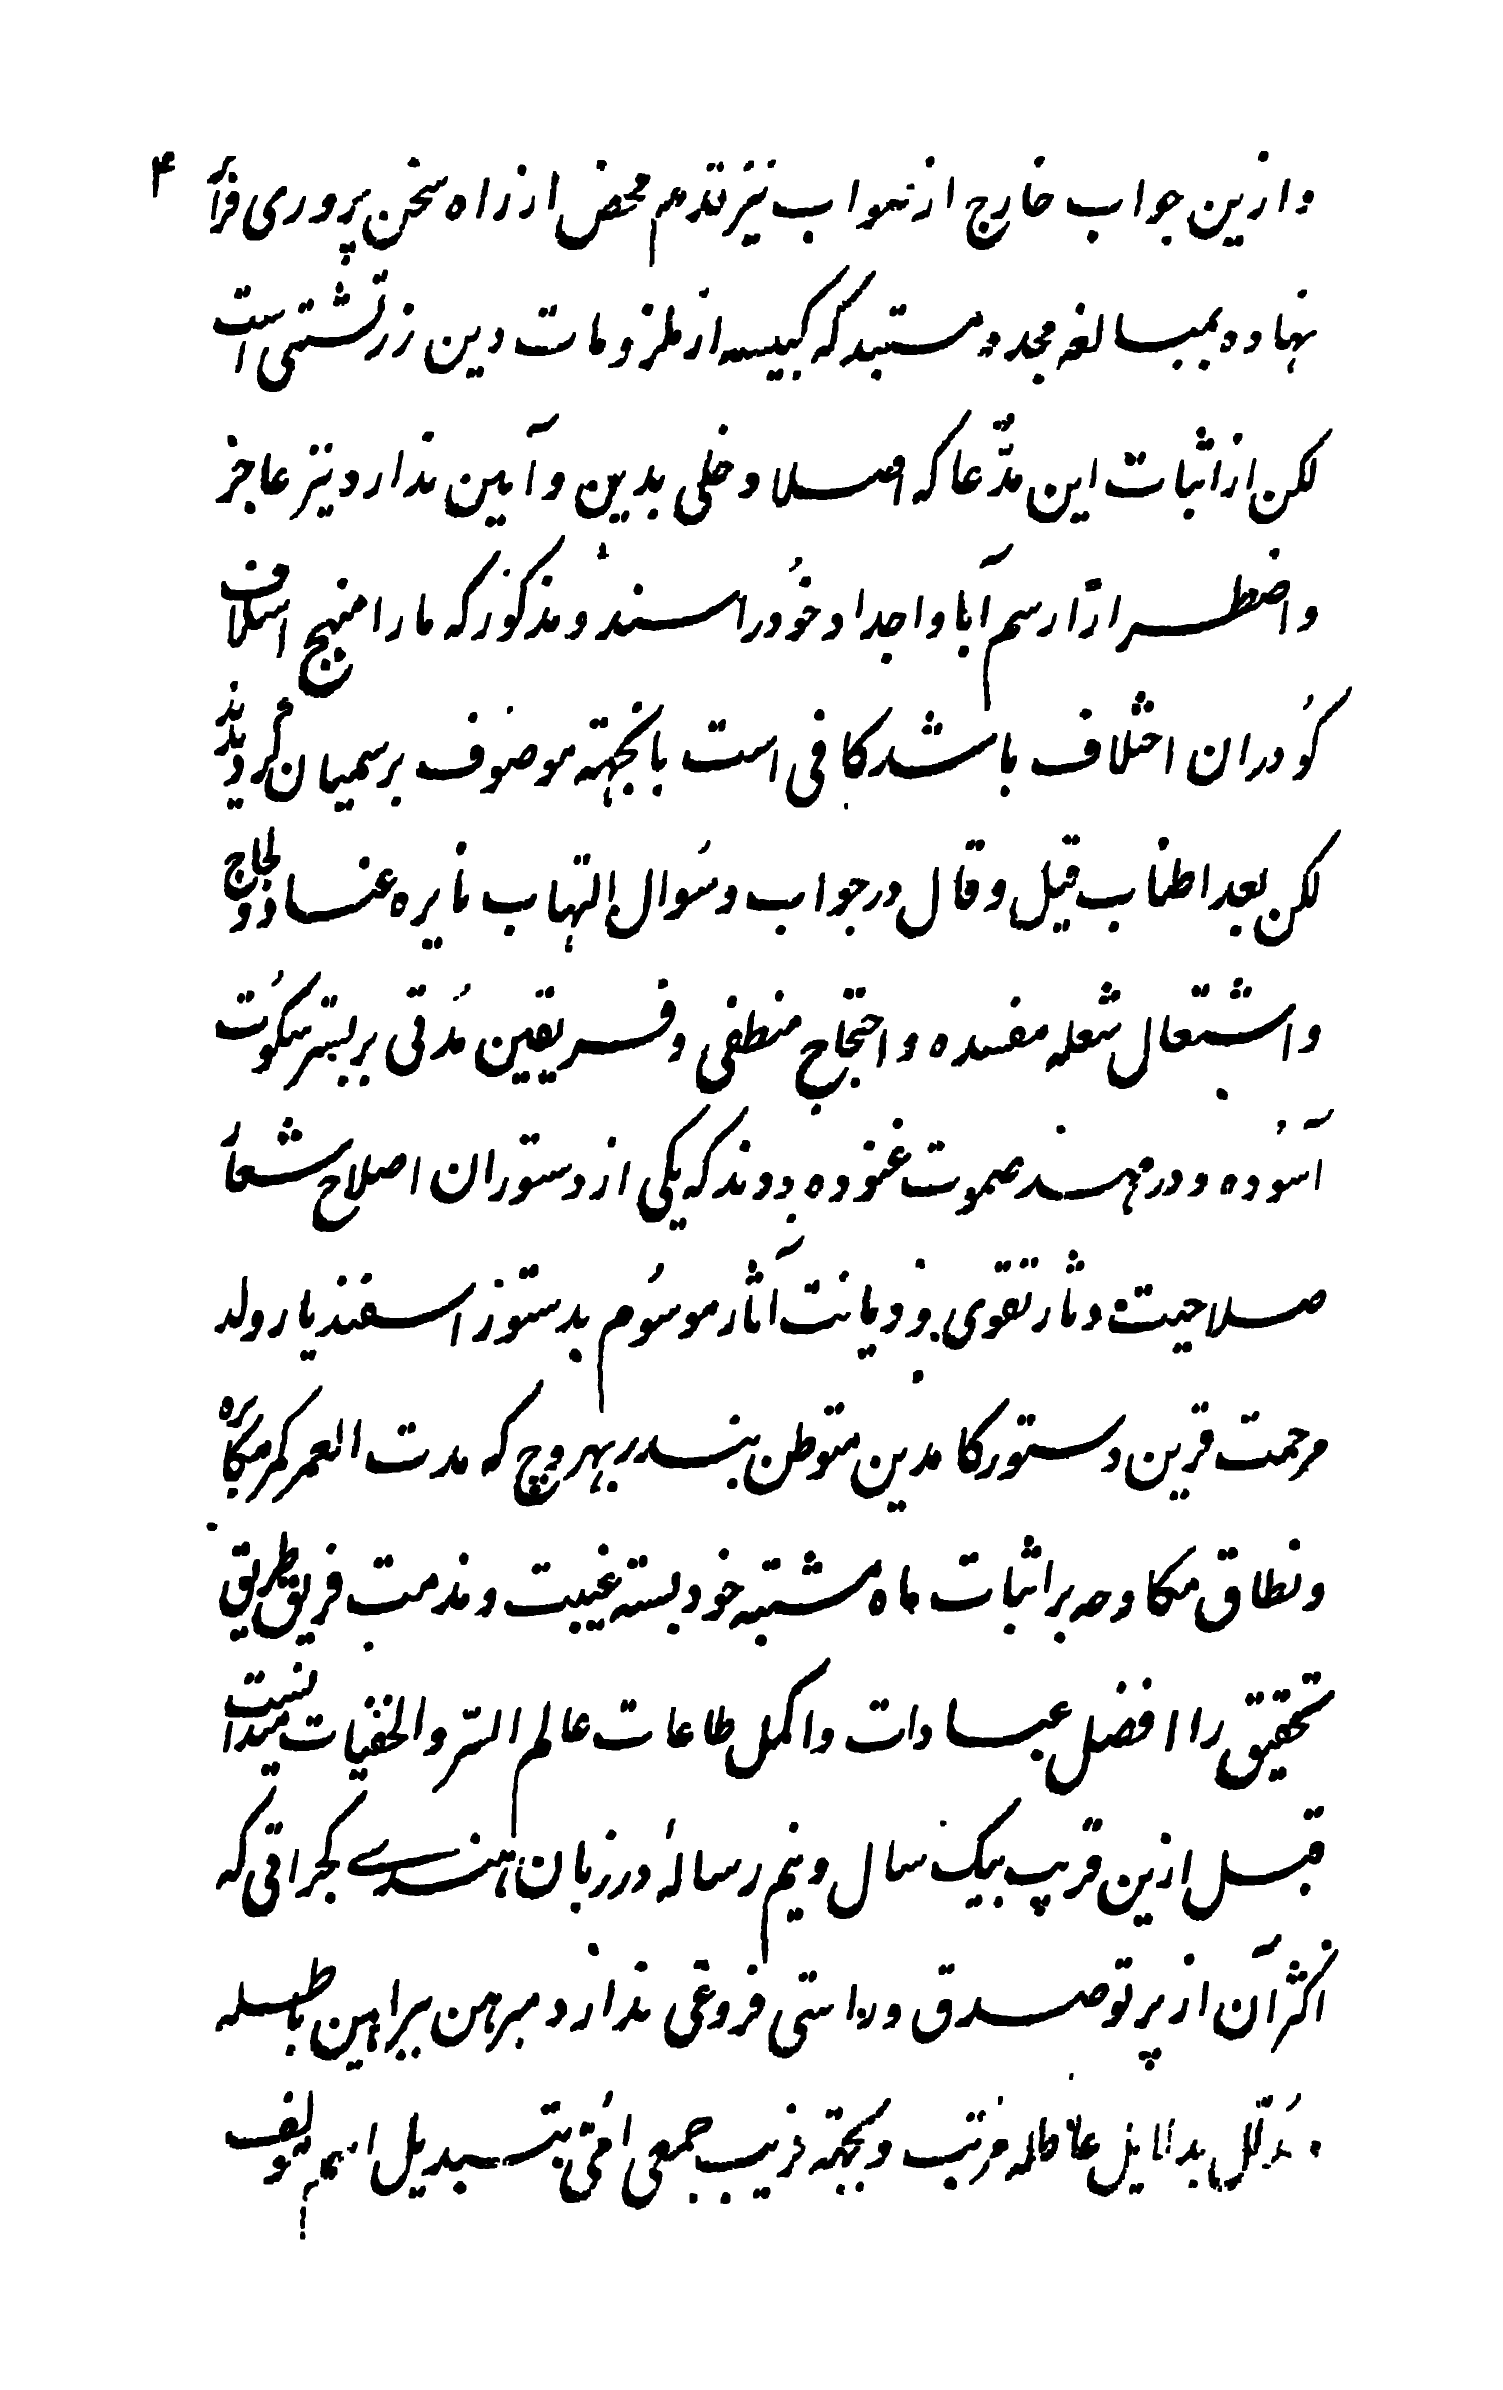 ۴
وازین جواب خارج از صواب نیز قدم محض از راه سخن پروری فرا
نهاده بمبالغه مجدد مستبد که کبیسه از ملزومات دین زرتشتی است
لکن از اثبات این مدّعا که اصلا دخلی بدین و آیین ندارد نیز عاجز
واضطرارًا رسم آبا واجداد خُود را سند و مذکور که مارا منهج اسلاف
کُو دران اختلاف باشد کافی است بانجهته موصوف برسمیان گردیدند
لکن بعد اطناب قیل وقال در جواب وسُوال التهاب نایره عناد ولجاج
واشتعال شعله مفسده واحتجاج منطفی وفریقین مُدتی بر بستر سکُوت
آسُوده و در مهد صموت غنوده بودند که یکی از دستوران اصلاح شعار
صلاحیت دثار تقوی و دیانت آثار موسُوم بدستور اسفندیار ولد
مرحمت قرین دستور کامدین متوطن بندر بهروچ که مدت العمر کمر مکابره
ونطاق مکاوحه بر اثبات ماه مشتبه خود بسته غیبت ومذمت فریق طریق
تحقیق را افضل عبادات واکمل طاعات عالم السّر والخفیات میدانست
قبل ازین قریب بیک سال ونیم رسالهٔ در زبان هندی کجراتی که
اکثر آن از پرتو صدق وراستی فروغی ندارد مبرهن ببراهین باطله
و مُدلّل بدلایل عاطله مرتب وبجهته فریب جمعی اُمّی بتبدیل اسم مولف